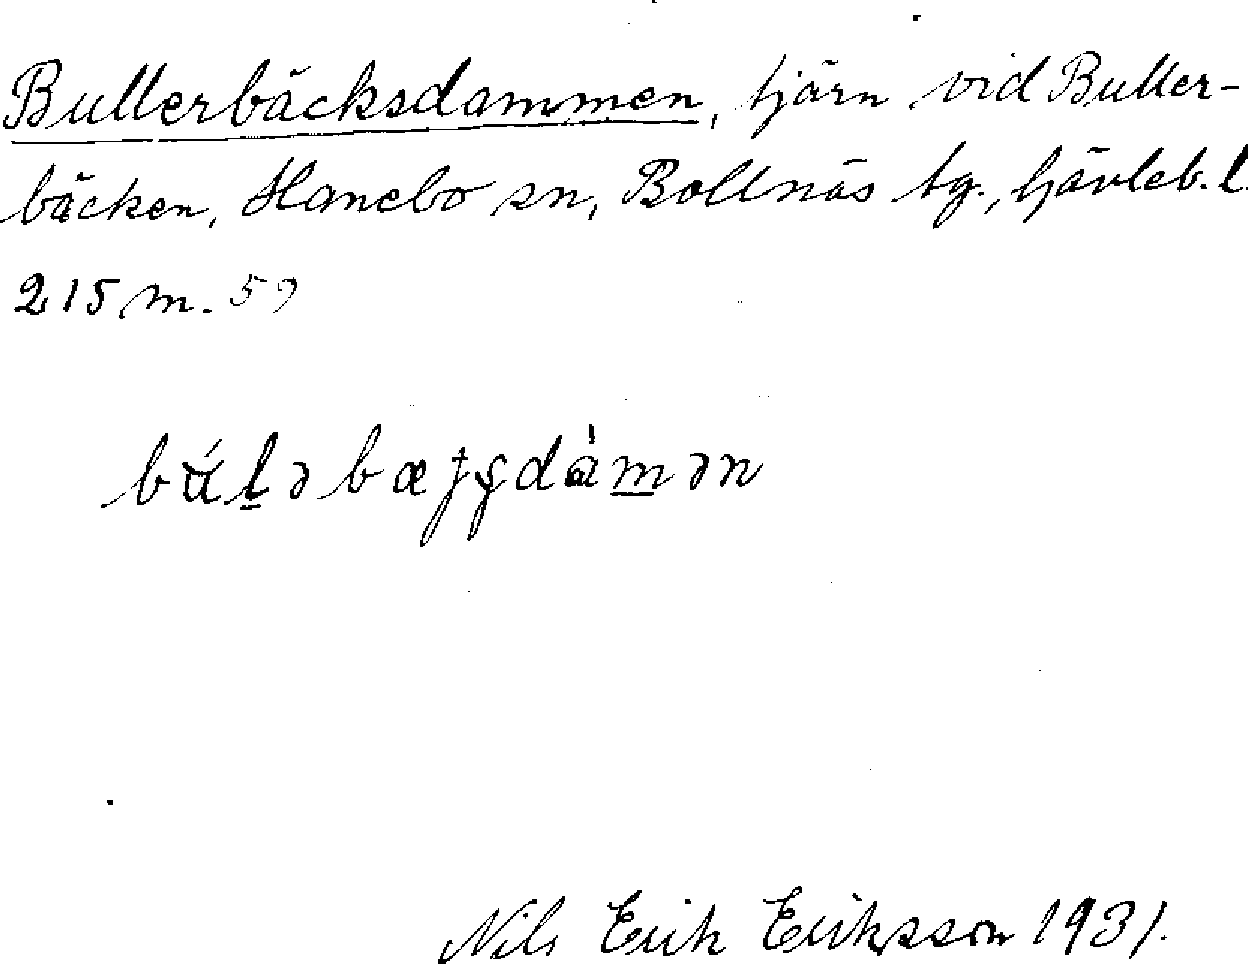 Bullerbäcksdammen, tjärn vid Buller-
bäcken, Hanebo sn, Bollnäs tg., Gävleb. l.
215 m. 59
Nils Erik Eriksson 1931.